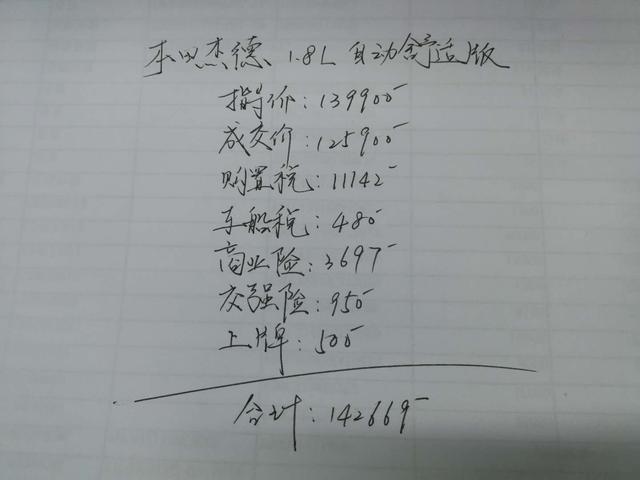 本田杰德 1.8L 自动舒适版
指导价:139900-
成交价:125900-
购置税:11142-
车船税:480-
商业险:3697-
交强险:950-
上牌:500-
合计:142669-